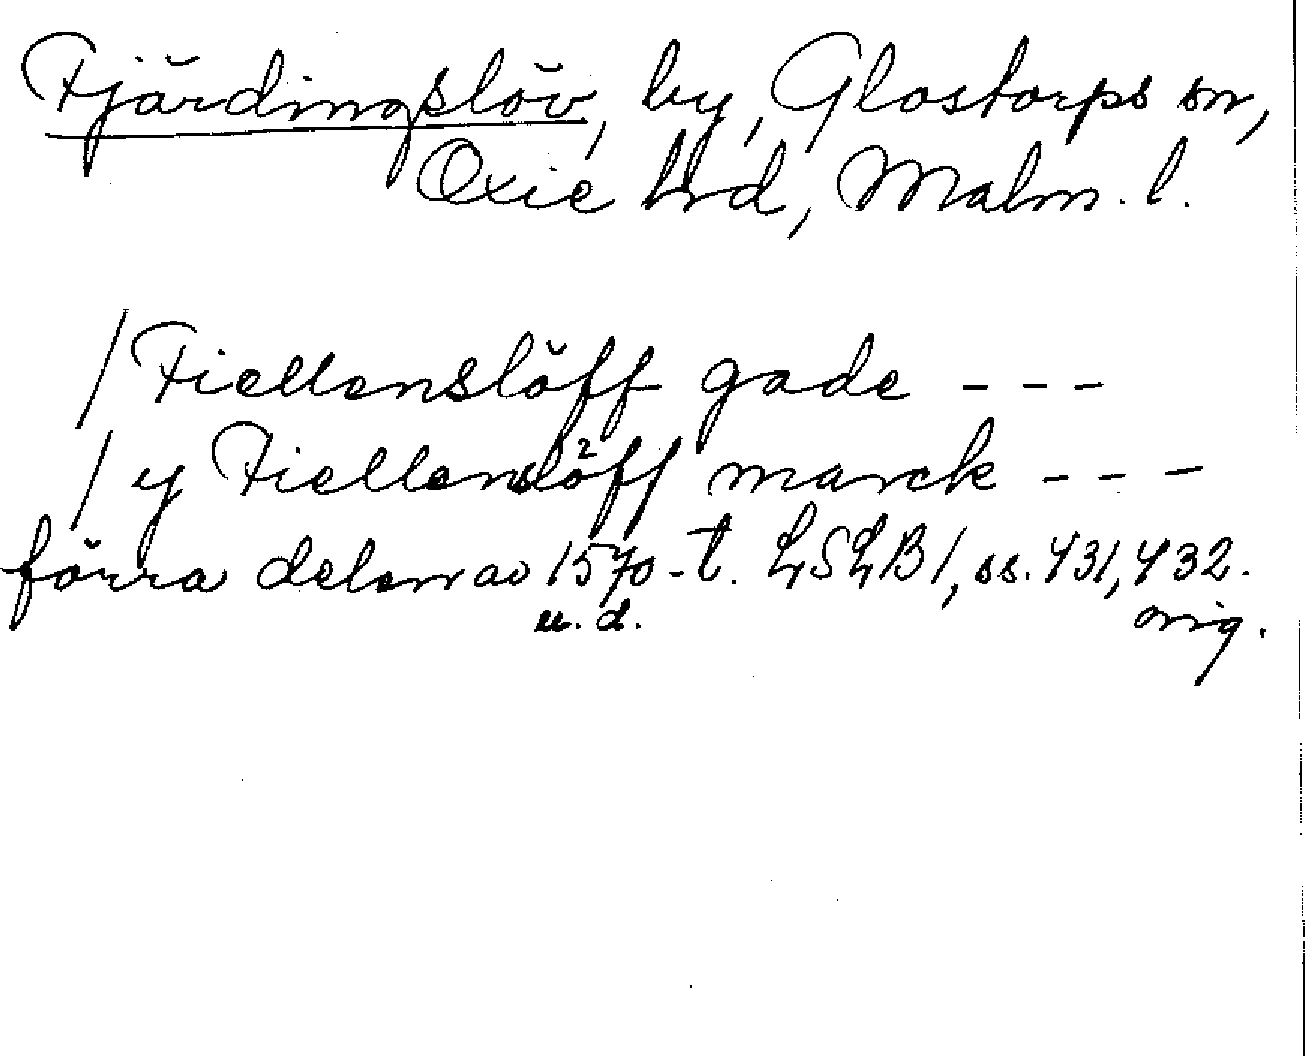 Fjärdingslöv, by, Glostorps sn,
Oxie hrd, Malm. l.
/ Fiellenslöff gade - - -
/ y Fiellenslöff marck - - -
förra delen av 1570-t. LSLB 1, ss. 431, 432.
u. d. orig.